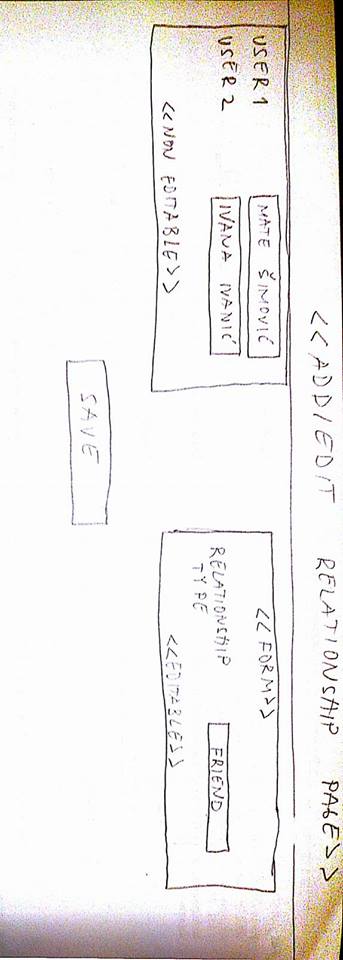 <<ADD/EDIT RELATIONSHIP PAGE>>
USER 1 MATE ŠIMOVIĆ
USER 2 IVANA IVANIĆ
<<NON EDITABLE>>
<<FORM>>
RELATIONSHIP
TYPE
FRIEND
<<EDITABLE>>
SAVE